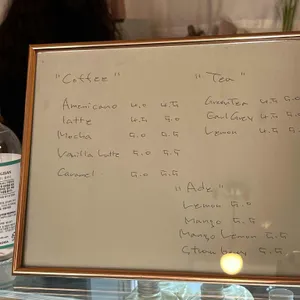 "Coffee"
Americano 4.5 4.5
latte 4.5 5.0
Mocha 5.0 5.5
Vanilla latte 5.0 5.5
Caramel 5.0 5.5
"Tea"
GreenTea 4.5 5.0
Earl Grey 4.5 5.0
Lemon 4.5 5.5
"Ade"
Lemon 5.0
Mango 5.5
Mango Lemon 5.5
5.5